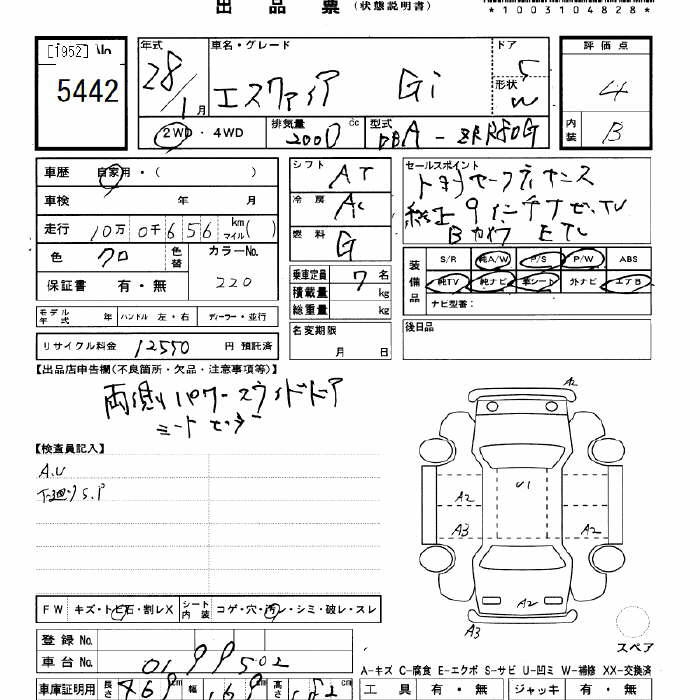 出 品 票 (状態説明書)
*1003104828*
[1952]
5442
年式 28/1月
車名・グレード エスクァイア Gi
ドア 5
形状 W
評価点 4
内装 B
2WD・4WD 排気量 2000 cc 型式 DBA-ZRR80G
車歴 自家用・( )
車検 年 月
走行 10万0千656 km マイル( )
色 クロ 色替 カラーNo. 220
保証書 有・無
シフト AT
冷房 AC
燃料 G
乗車定員 7名
積載量 kg
総重量 kg
名変期限 月 日
セールスポイント
トヨタセーフティセンス
純正9インチナビ.TV
Bカメラ ETC
装備品 S/R 純A/W P/S P/W ABS
純TV 純ナビ 革シート 外ナビ エアB
ナビ型番:
後日品
モデル年式 年 ハンドル 左・右 ディーラー・並行
リサイクル料金 12550 円 預託済
【出品店申告欄(不良箇所・欠品・注意事項等)】
両側パワースライドドア
シートヒーター
【検査員記入】
A.U
下廻りS.P
A2
U1
A2
A3 A2
A2
A3
スペア
FW キズ・トビ石・割レX シート内装 コゲ・穴・汚レ・シミ・破レ・スレ
登録 No.
車台 No. 0199502
A-キズ C-腐食 E-エクボ S-サビ U-凹ミ W-補修 XX-交換済
車庫証明用 長さ 469 cm 幅 169 cm 高さ 182 cm
工具 有・無 ジャッキ 有・無